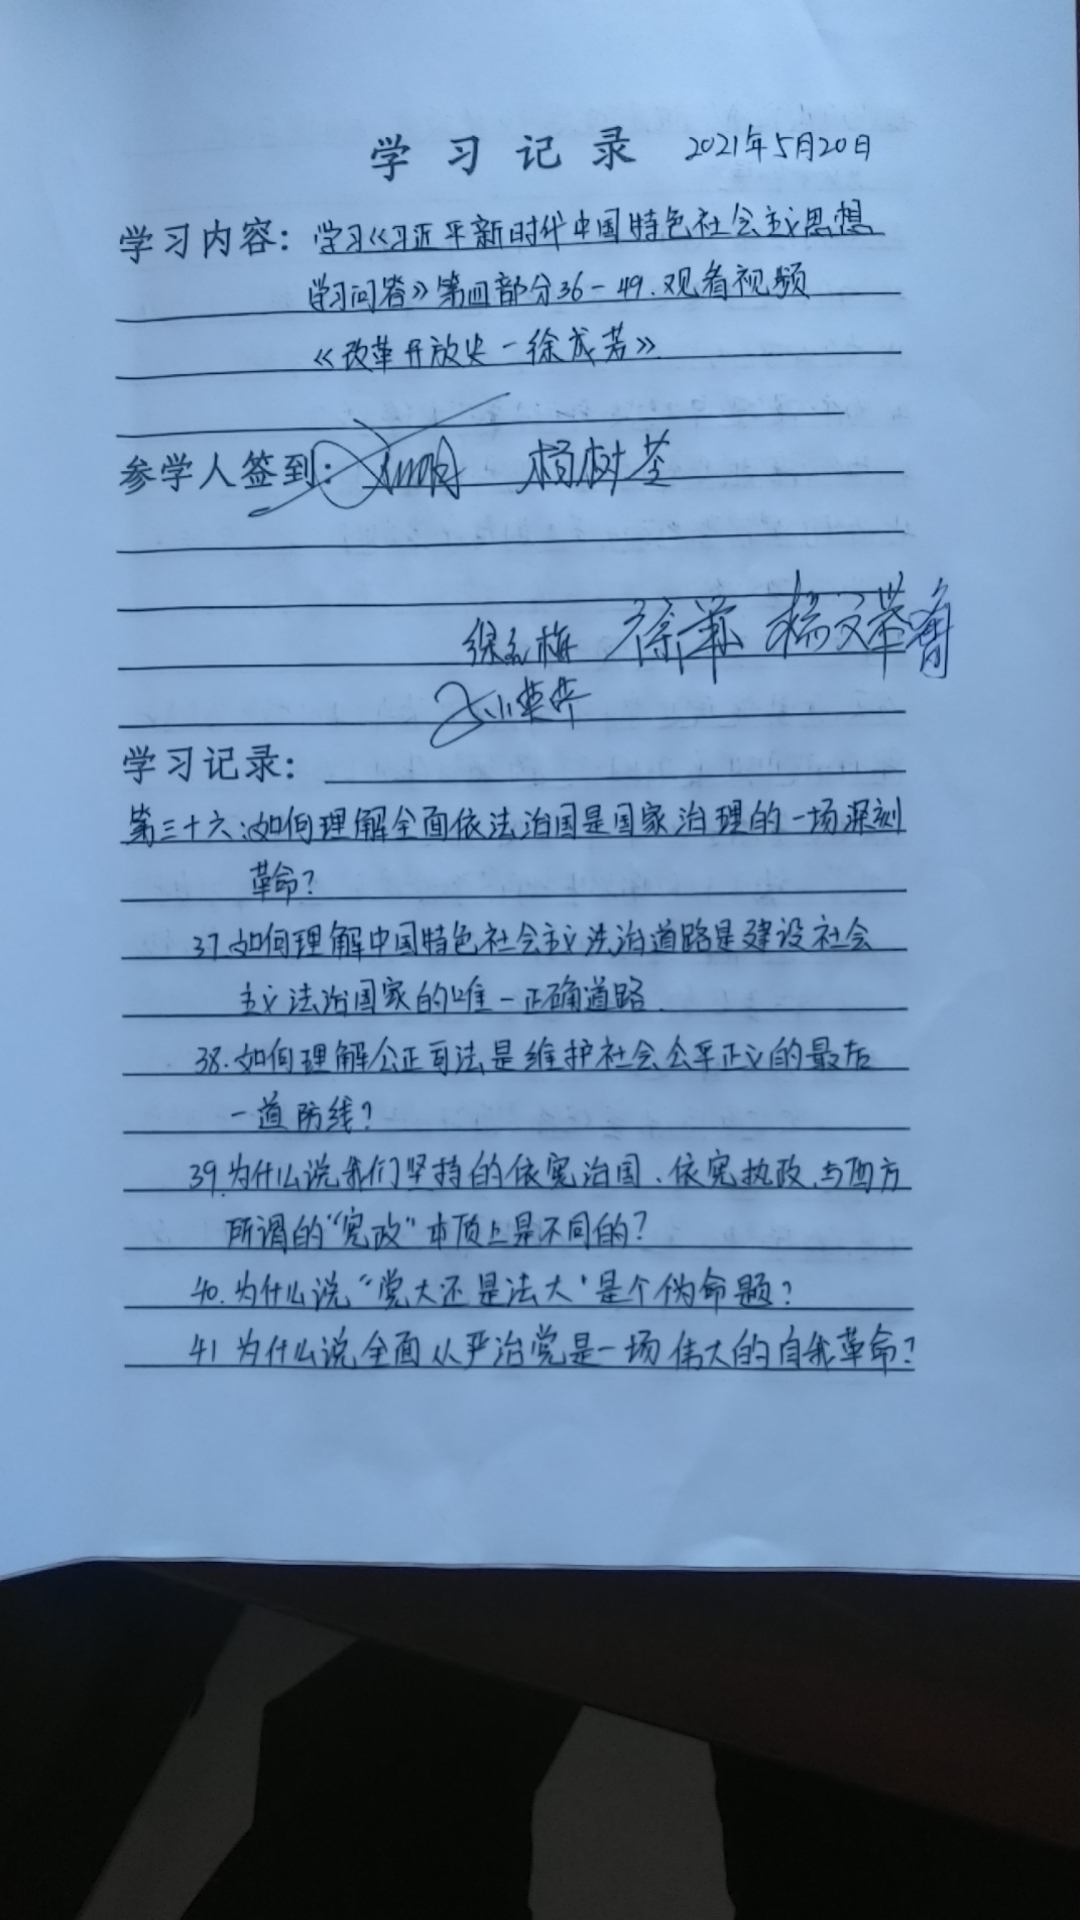 学习记录 2021年5月20日
学习内容：学习《习近平新时代中国特色社会主义思想
学习问答》第四部分36-49.观看视频
《改革开放史-徐成芳》
参学人签到： 杨树
徐 梅 徐 杨文
学习记录：
第三十六:如何理解全面依法治国是国家治理的一场深刻
革命?
37.如何理解中国特色社会主义法治道路是建设社会
主义法治国家的唯一正确道路.
38.如何理解公正司法是维护社会公平正义的最后
一道防线?
39.为什么说我们坚持的依宪治国、依宪执政,与西方
所谓的“宪政”本质上是不同的?
40.为什么说“党大还是法大”是个伪命题?
41 为什么说全面从严治党是一场伟大的自我革命?